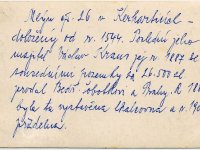 Mlýn čp. 26 v
doložený od r. 1544. Poslední jeho
majitel Václav Kraus jej r. 1887 se
sousedními pozemky za 26.500 zl
prodal Bedř. z Prahy. R. 188
byla tu vystavěna a r. 190
přádelna.